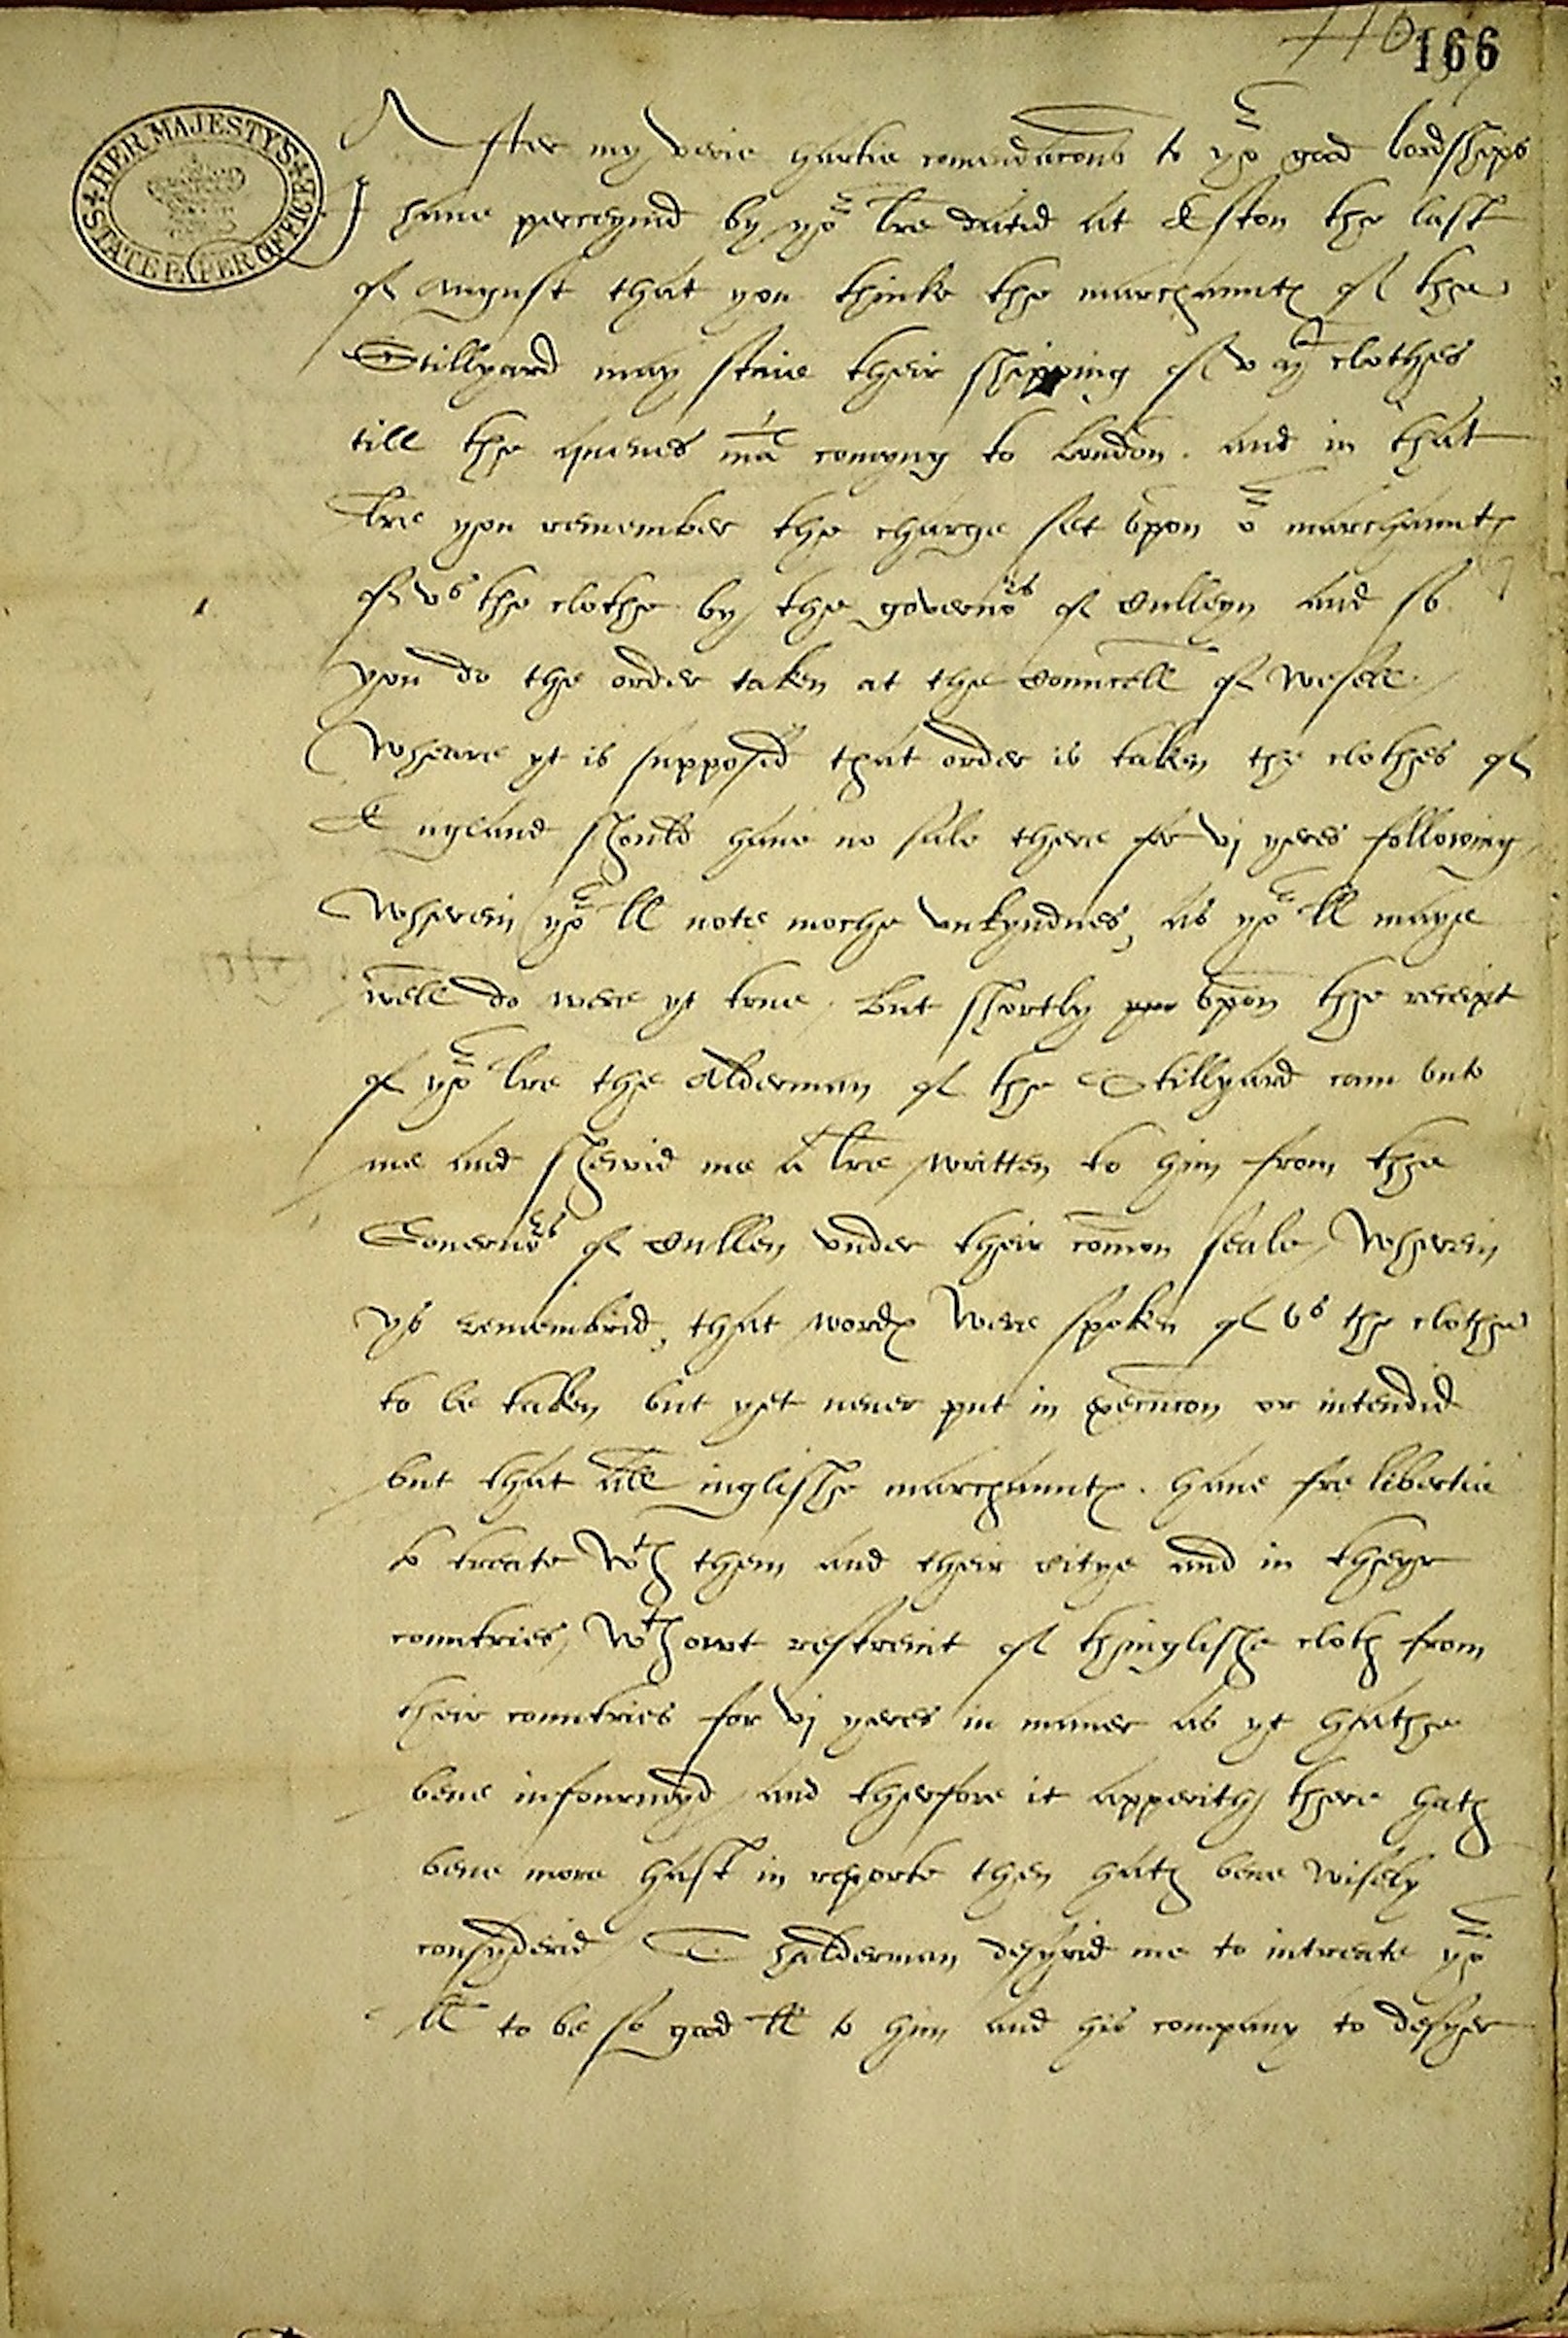 166
HER MAJESTY'S STATE PAPER OFFICE
After my verie hartie comendacons to yor good lordships
I haue perceyuid by yor lre datid at Eston the last
of August that you thinke the marchauntes of the
Stillyard may staie their shipping of v ml clothes
till the quenes matie comyng to London. and in that
lre you remember the charge set vpon or marchauntes
of vs the clothe by the governors of Culleyn and so
you do the order taken at the Councell of Wesell
Wheare yt is supposid that order is taken the clothes of
England should haue no sale there for vj yeres following,
Wherein yor ll note moche vnkyndnes, as yor ll maye
well do were yt true. But shortly vpon the receipt
of yor lre the Alderman of the Stillyard cam vnto
me and shewid me a lre written to him from the
Gouernors of Cullen vnder their comon seale, Wherein
ys remembrid, that wordes were spoken of vs the clothe
to be taken but yet neuer put in execucon or intendid
but that all inglishe marchauntes. haue fre libertie
to treate wth them and their citye and in theyr
countries, wthowt restreint of thinglishe cloth from
their countries for vj yeres in maner as yt hathe
bene infourmyd, and therfore it apperith, there hath
bene more hast in reporte then hath bene wisely
consyderid / Thalderman desyrid me to intreate yor
ll to be so good ll to him and his company to desyer